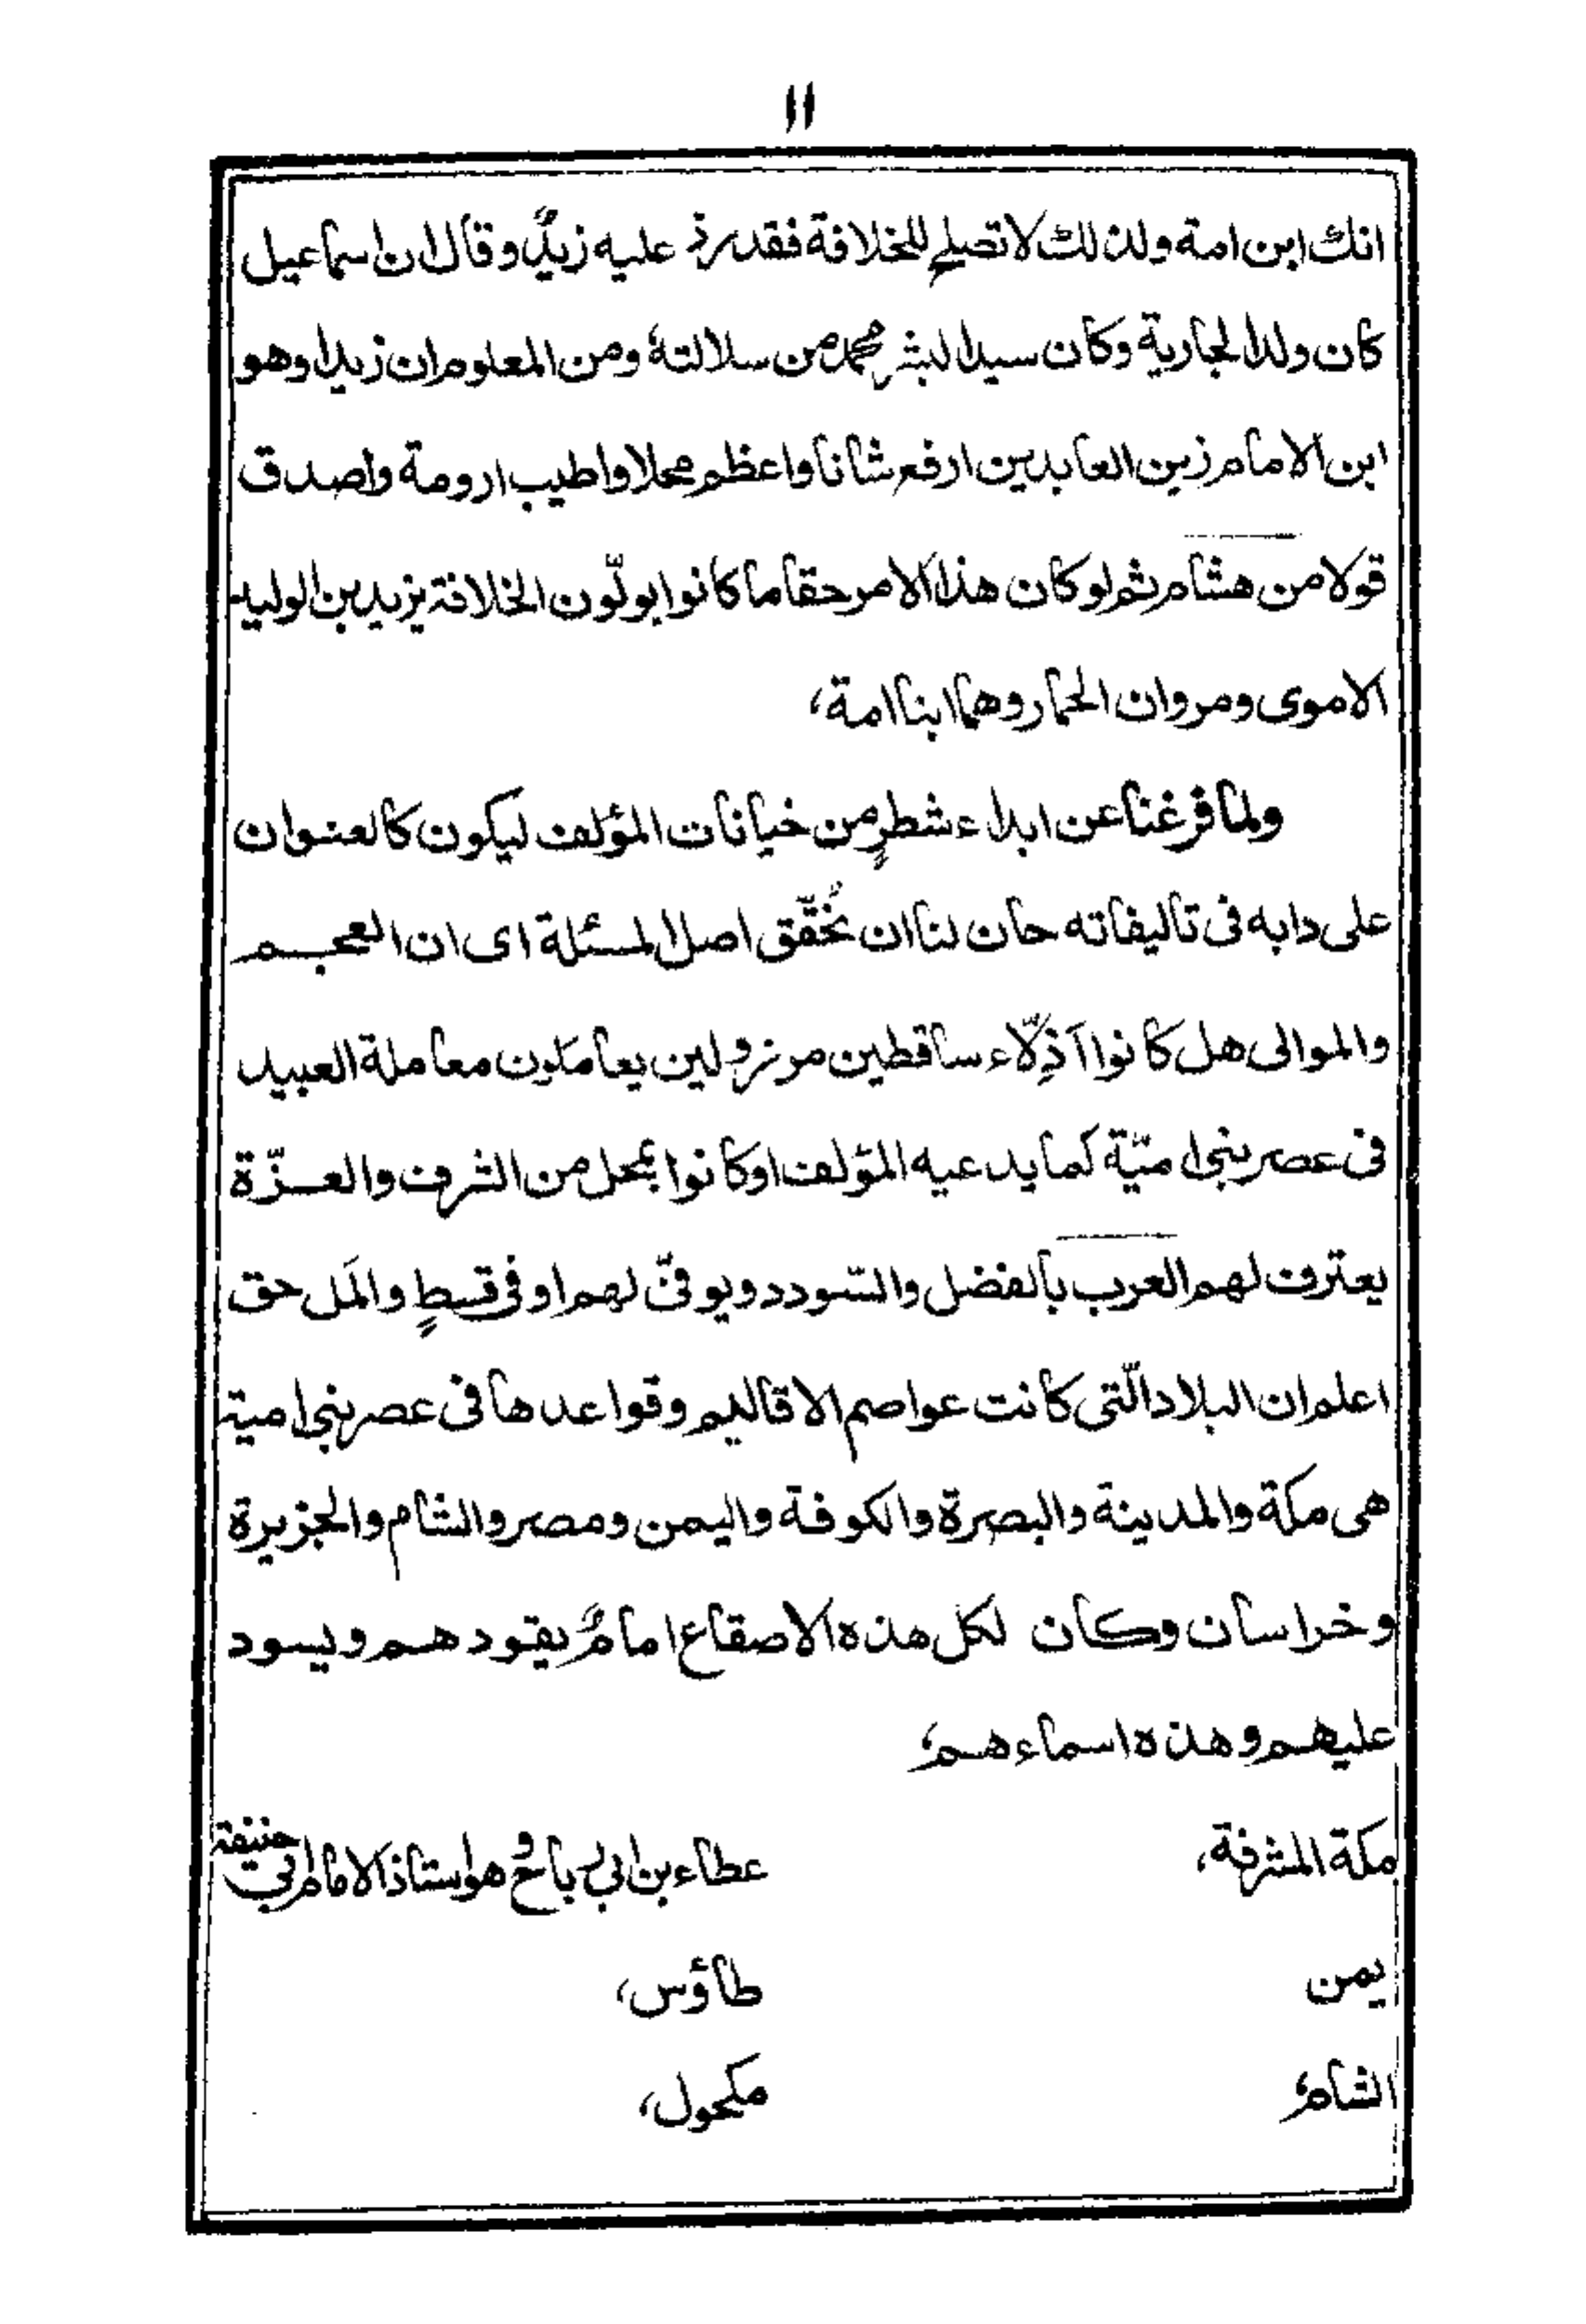 ١١
انك ابن امة ولذلك لا تصلح للخلافة فقد رد عليه زيدٌ وقال ان اسماعيل
كان ولد الجارية وكان سيد البشر محمد من سلالته، ومن المعلوم ان زيدا وهو
ابن الامام زين العابدين ارفع شانا واعظم محلا واطيب ارومة واصدق
قولا من هشام ثم لو كان هذا الامر حقا ما كانوا يولّون الخلافة يزيد بن الوليد
الاموى ومروان الحمار وهما ابنا امة،
ولما فرغنا عن ابداء شطرٍ من خيانات المؤلف ليكون كالعنوان
على دابه فى تاليفاته حان لنا ان نُحقّق اصل المسئلة اى ان العجم
والموالى هل كانوا آذِلّاء ساقطين مرذولين يعاملون معاملة العبيد
فى عصر بنى اميّة كما يدعيه المؤلف او كانوا بمحل من الشرف والعزّة
يعترف لهم العرب بالفضل والسّودد ويوفىّ لهم اوفى قسطٍ والمَل حق
اعلم ان البلاد الّتى كانت عواصم الاقاليم وقواعدها فى عصر بنى امية
هى مكة والمدينة والبصرة والكوفة واليمن ومصر والشام والجزيرة
وخراسان وكان لكل هذه الاصقاع امامٌ يقودهم ويسود
عليهم وهذه اسماءهم،
مكة المشرفة، عطاء بن ابى رباح وهو استاذ الامام ابى حنيفة
يمن طاؤس،
الشام، مكحول،